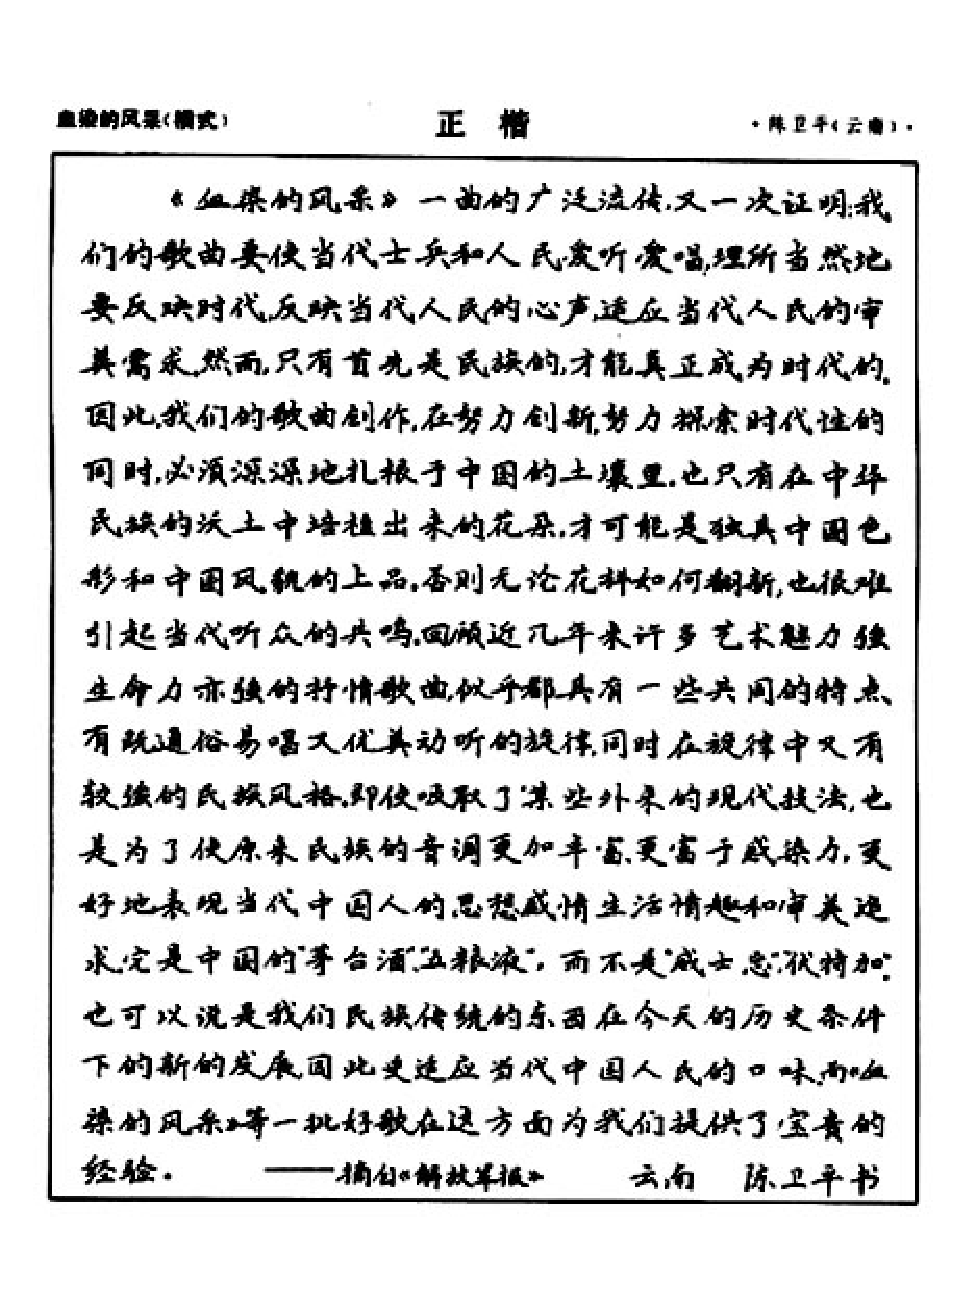 血染的风采(横式)
正 楷
·陈卫平(云南)·
《血染的风采》一曲的广泛流传,又一次证明:我
们的歌曲要使当代士兵和人民爱听爱唱,理所当然地
要反映时代,反映当代人民的心声,适应当代人民的审
美需求,然而,只有首先是民族的,才能真正成为时代的。
因此,我们的歌曲创作,在努力创新,努力探索时代性的
同时,必须深深地扎根于中国的土壤里,也只有在中华
民族的沃土中培植出来的花朵,才可能是独具中国色
彩和中国风貌的上品,否则无论花样如何翻新,也很难
引起当代听众的共鸣,回顾近几年来许多艺术魅力强
生命力亦强的抒情歌曲,似乎都具有一些共同的特点、
有既通俗易唱又优美动听的旋律,同时在旋律中又有
较强的民族风格,即使吸取了某些外来的现代技法,也
是为了使原来民族的音调更加丰富、更富于感染力,更
好地表现当代中国人的思想感情生活情趣和审美追
求,它是中国的“茅台酒”、“五粮液”,而不是“威士忌”、“伏特加”。
也可以说是我们民族传统的东西在今天的历史条件
下的新的发展,因此更适应当代中国人民的口味,而《血
染的风采》等一批好歌在这方面为我们提供了宝贵的
经验。 ——摘自《解放军报》 云南 陈卫平书